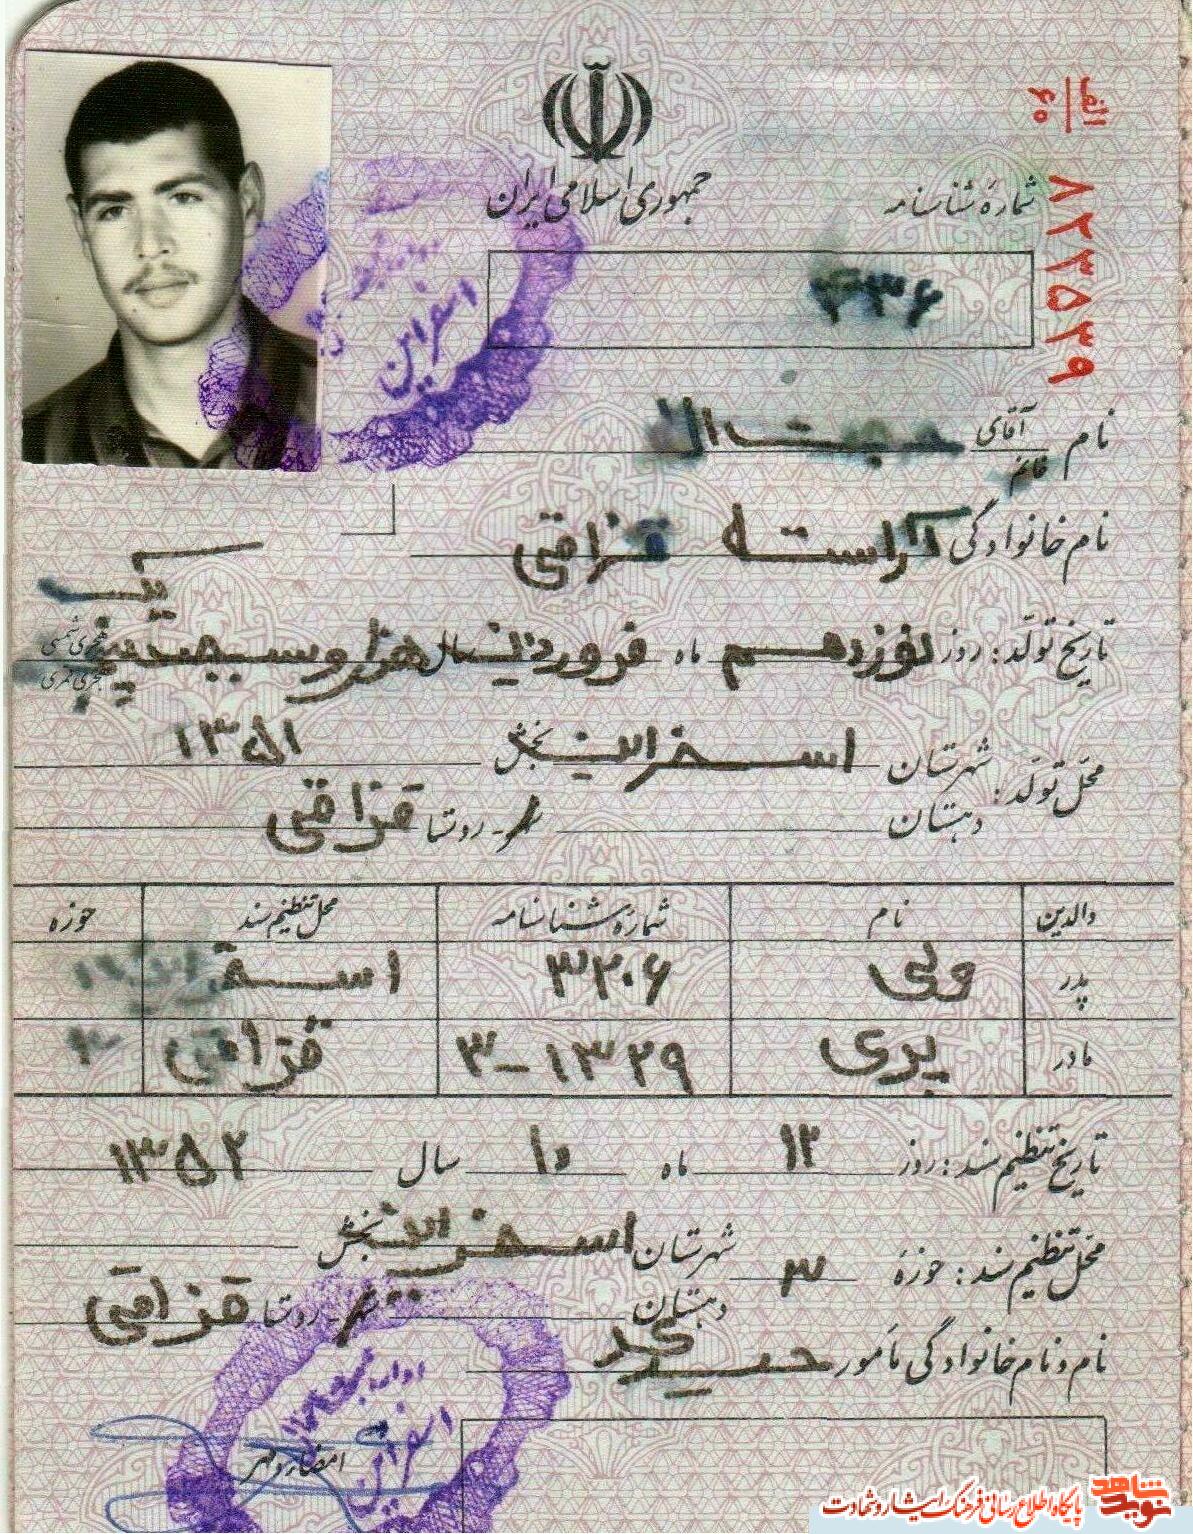 جمهوری اسلامی ایران
الف
۶۰
۸۲۳۵۳۹
شمارهٔ شناسنامه
۴۳۶
اسفراین
نام آقای
خانم
نام خانوادگی آراسته قزاقی
یک
تاریخ تولّد: روز نوزدهم ماه فروردین سال هزار و سیصد پنجاه هجری شمسی
هجری قمری
محلّ تولّد: شهرستان اسفراین بخش ۱۳۵۱
دهستان شهر - روستا قزاقی
والدین نام شمارهٔ شناسنامه محل تنظیم سند حوزه
پدر ولی ۳۲۰۶
مادر پری ۳-۱۳۲۹ قزاقی
تاریخ تنظیم سند: روز ۱۲ ماه ۱۰ سال ۱۳۵۲
محلّ تنظیم سند: حوزهٔ ۳ شهرستان اسفراین بخش
دهستان شهر - روستا قزاقی
نام و نام خانوادگی مأمور
امضاء و مهر
اسفراین
نوید شاهد
پایگاه اطلاع رسانی فرهنگ ایثار و شهادت